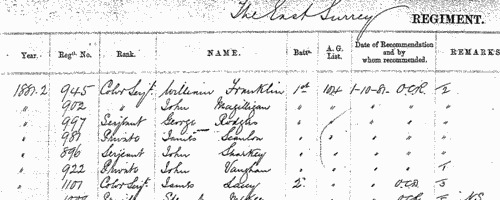 The East Surrey REGIMENT.
Year. Regtl. No. Rank. NAME. Batn. A. G. List. Date of Recommendation and by whom recommended. REMARKS
1881-2 945 Color Serjt. William Franklin 1st 104 1-10-81 O.C.R. 2
" 902 " John Magilligan " " " " "
" 997 Serjeant George " " " "
" 987 Private James Scanlon " " " "
" 896 Serjeant John Sharkey " " " "
" 922 Private John Vaughan " " " " 1
" 1101 Color Serjt. James Lacey 2 " " O.C.R. 3